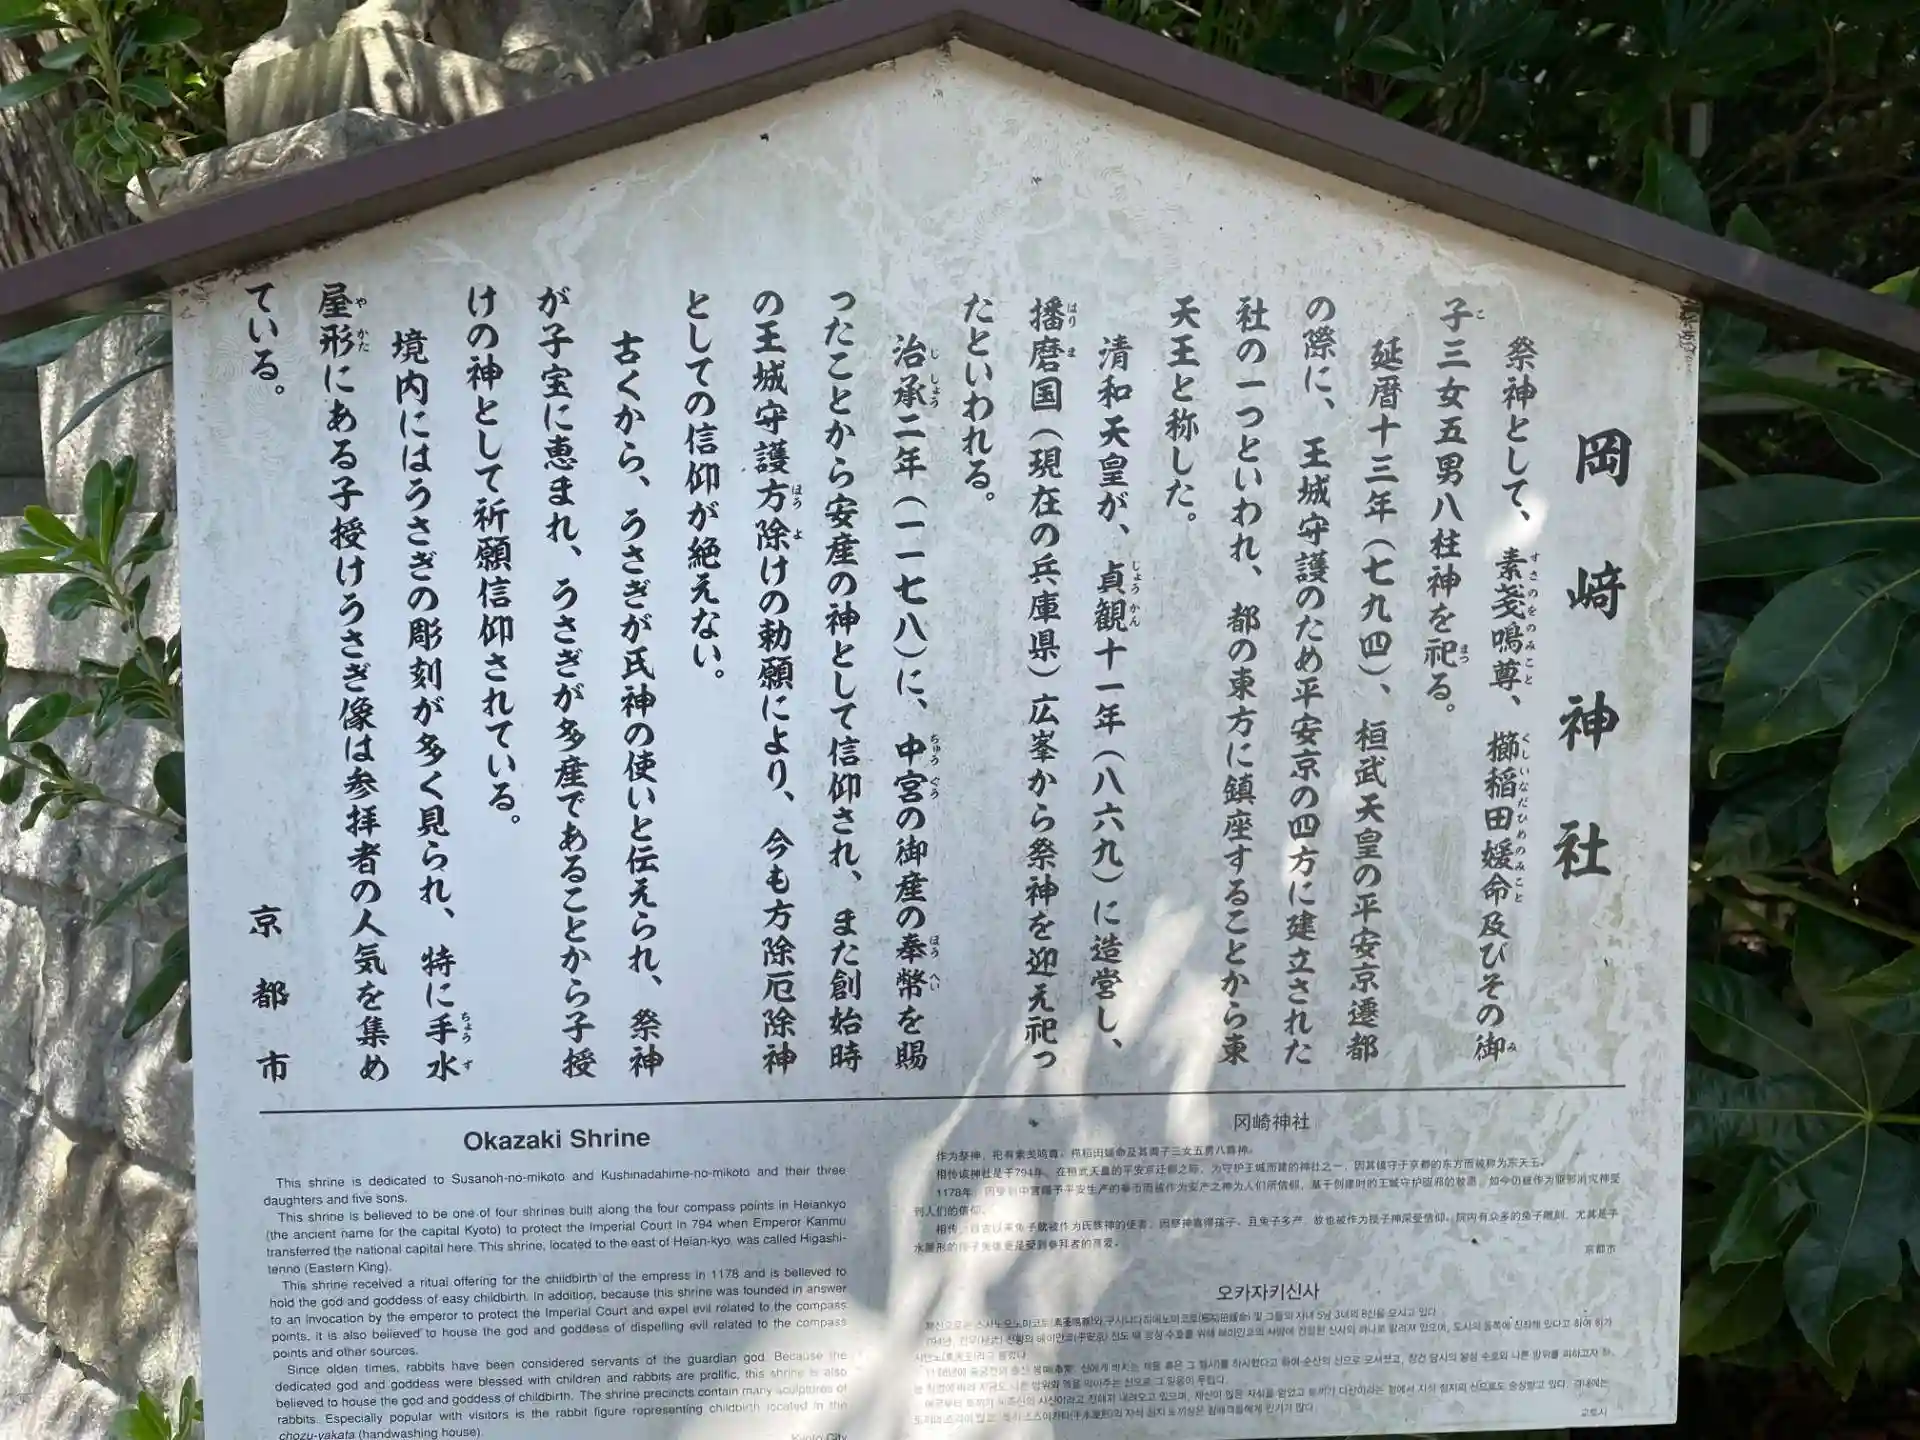 岡﨑神社
祭神として、素戔嗚尊、櫛稲田媛命及びその御
子三女五男八柱神を祀る。
延暦十三年（七九四）、桓武天皇の平安京遷都
の際に、王城守護のため平安京の四方に建立された
社の一つといわれ、都の東方に鎮座することから東
天王と称した。
清和天皇が、貞観十一年（八六九）に造営し、
播磨国（現在の兵庫県）広峯から祭神を迎え祀っ
たといわれる。
治承二年（一一七八）に、中宮の御産の奉幣を賜
ったことから安産の神として信仰され、また創始時
の王城守護方除けの勅願により、今も方除厄除神
としての信仰が絶えない。
古くから、うさぎが氏神の使いと伝えられ、祭神
が子宝に恵まれ、うさぎが多産であることから子授
けの神として祈願信仰されている。
境内にはうさぎの彫刻が多く見られ、特に手水
屋形にある子授けうさぎ像は参拝者の人気を集め
ている。
京都市
Okazaki Shrine
This shrine is dedicated to Susanoh-no-mikoto and Kushinadahime-no-mikoto and their three
daughters and five sons.
This shrine is believed to be one of four shrines built along the four compass points in Heiankyo
(the ancient name for the capital Kyoto) to protect the Imperial Court in 794 when Emperor Kanmu
transferred the national capital here. This shrine, located to the east of Heian-kyo, was called Higashi-
tenno (Eastern King).
This shrine received a ritual offering for the childbirth of the empress in 1178 and is believed to
hold the god and goddess of easy childbirth. In addition, because this shrine was founded in answer
to an invocation by the emperor to protect the Imperial Court and expel evil related to the compass
points, it is also believed to house the god and goddess of dispelling evil related to the compass
points and other sources.
Since olden times, rabbits have been considered servants of the guardian god. Because the
dedicated god and goddess were blessed with children and rabbits are prolific, this shrine is also
believed to house the god and goddess of childbirth. The shrine precincts contain many sculptures of
rabbits. Especially popular with visitors is the rabbit figure representing childbirth located in the
chozu-yakata (handwashing house).
Kyoto City
冈崎神社
相传该神社是于794年，在桓武天皇的平安京迁都之际，为守护王城而建的神社之一，因其镇守于京都的东方而被称为东天王。
到人们的信仰。
京都市
오카자키신사
교토시